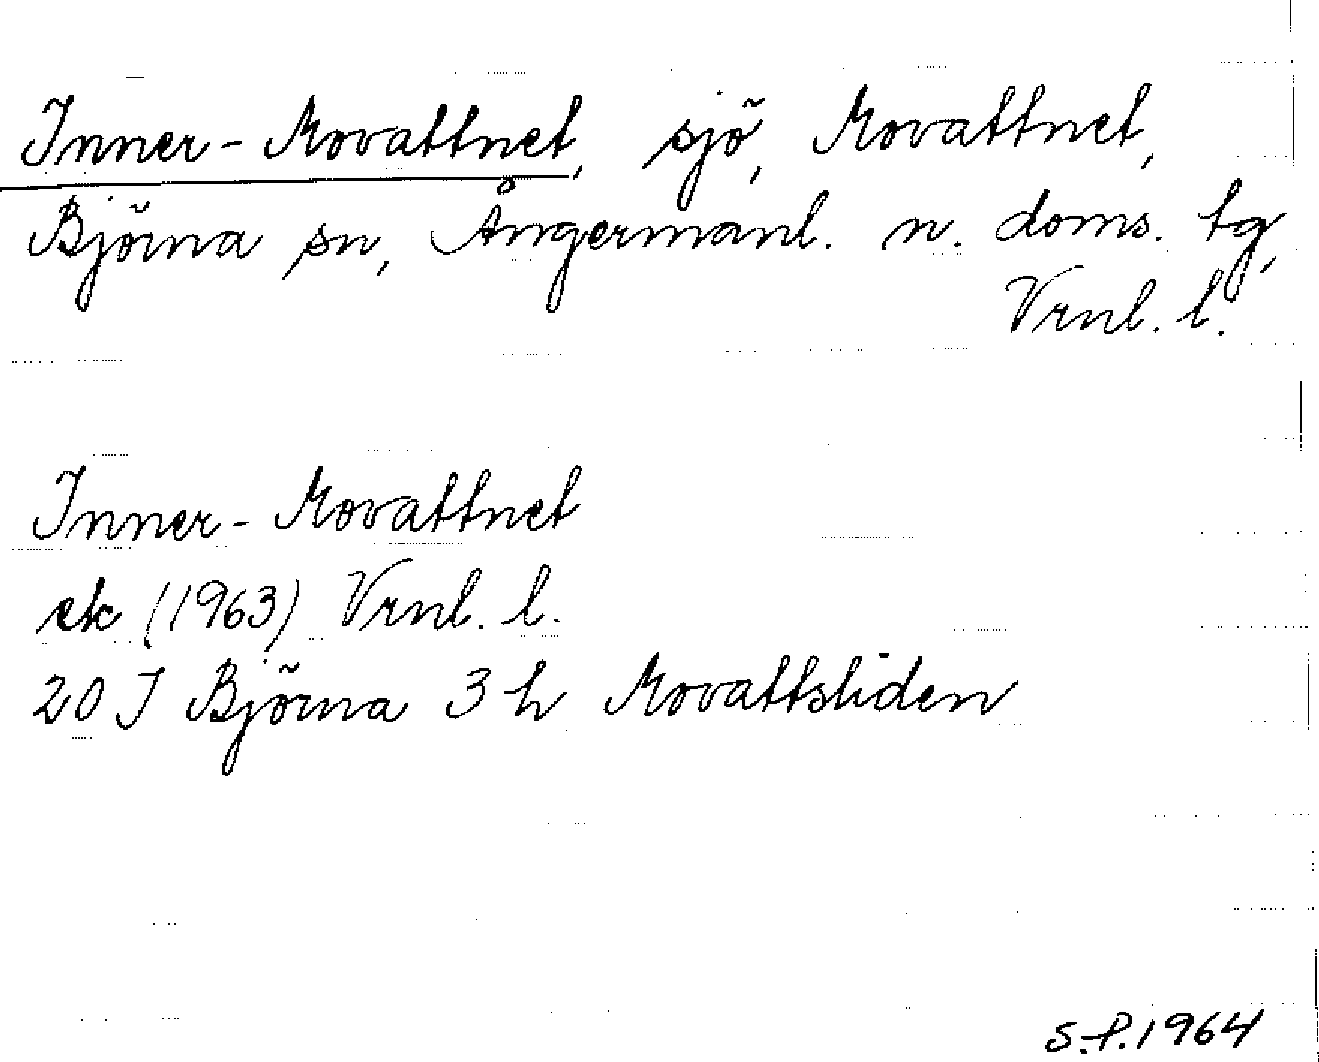 Inner-Movattnet, sjö, Movattnet,
Björna sn, Ångermanl. n. doms. tg,
Vrnl. l.
Inner-Movattnet
ek (1963) Vrnl. l.
20 J Björna 3 h Movattsliden
S.P. 1964